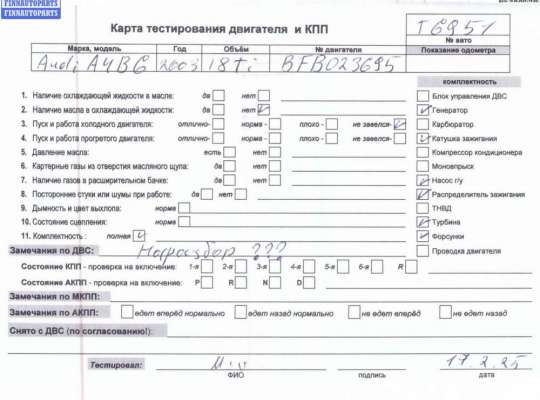 FINNAUTOPARTS
FINNAUTOPARTS
Карта тестирования двигателя и КПП
T6951
№ авто
Марка, модель Год Объём № двигателя Показание одометра
Audi A4B6 2003 1.8Ti BFB023695
комплектность
1. Наличие охлаждающей жидкости в масле: да нет
Блок управления ДВС
2. Наличие масла в охлаждающей жидкости: да нет
Генератор
3. Пуск и работа холодного двигателя: отлично- норма - плохо - не завелся-
Карбюратор
4. Пуск и работа прогретого двигателя: отлично- норма - плохо - не завелся-
Катушка зажигания
5. Давление масла: есть нет
Компрессор кондиционера
6. Картерные газы из отверстия масляного щупа: да нет
Моновпрыск
7. Наличие газов в расширительном бачке: да нет
Насос г/у
8. Посторонние стуки или шумы при работе: да нет
Распределитель зажигания
9. Дымность и цвет выхлопа: норма
ТНВД
10. Состояние сцепления: норма
Турбина
11. Комплектность : полная
Форсунки
Замечания по ДВС: На разбор ???
Проводка двигателя
Состояние КПП - проверка на включение: 1-я 2-я 3-я 4-я 5-я 6-я R
Состояние АКПП - проверка на включение: P R N D
Замечания по МКПП:
Замечания по АКПП: едет вперёд нормально едет назад нормально не едет вперёд не едет назад
Снято с ДВС (по согласованию!):
Тестировал: 17.2.25
ФИО подпись дата